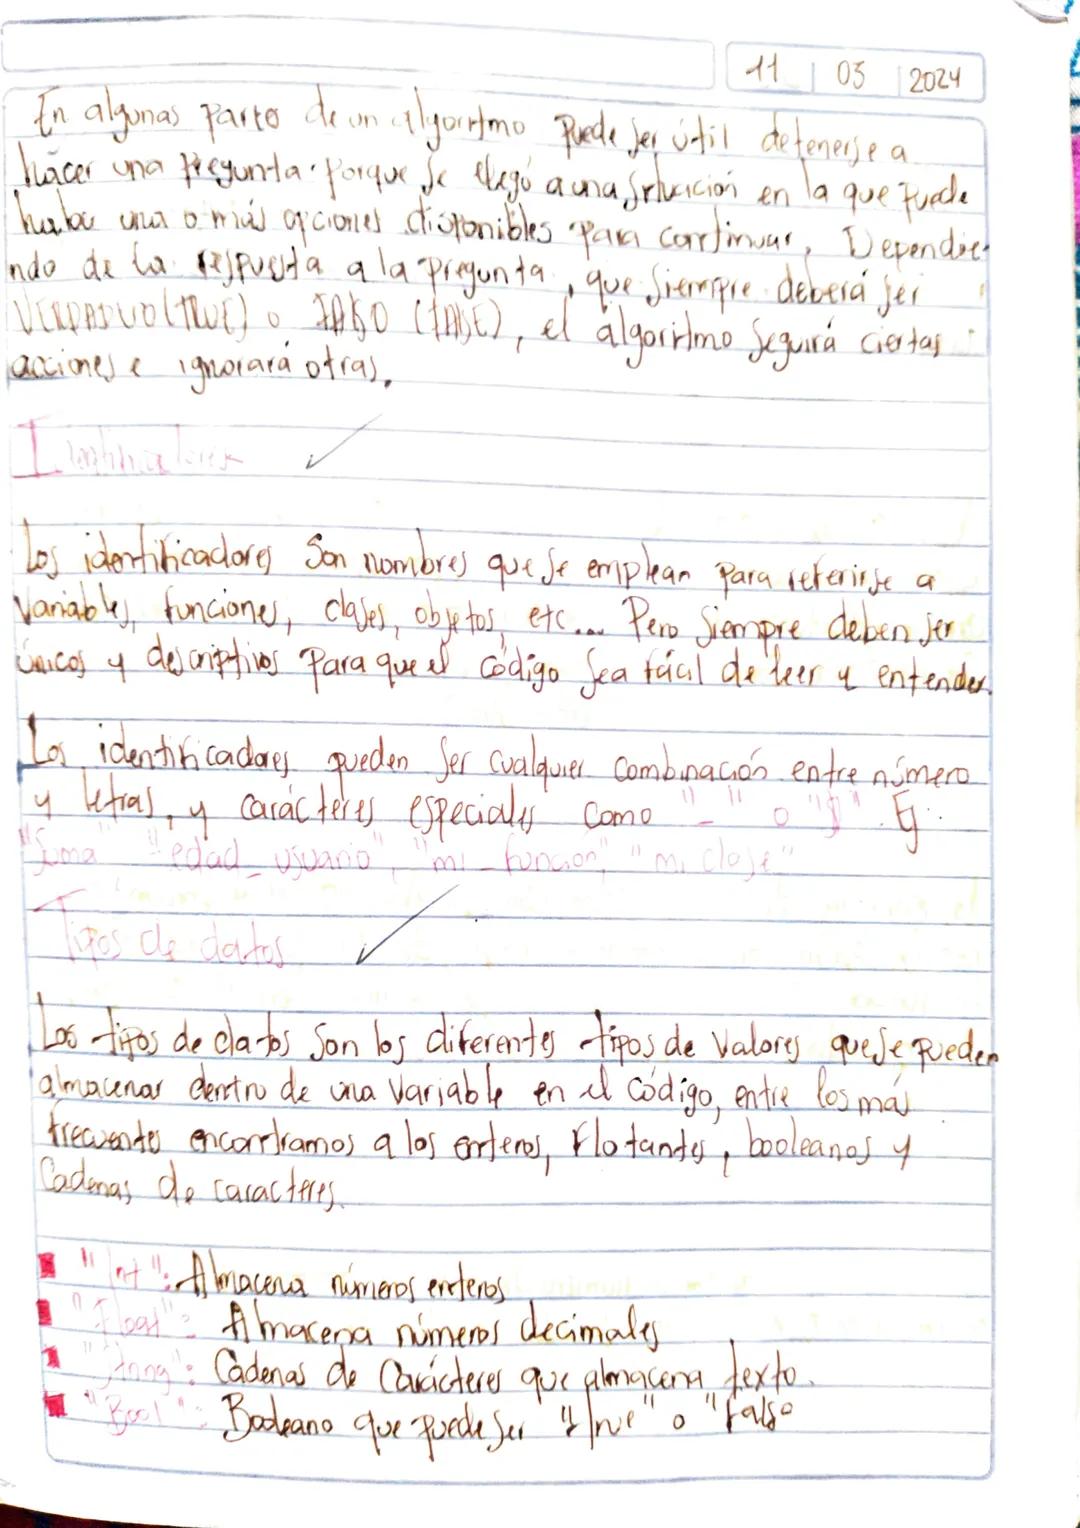 11 03 2024
En algunas partes de un algoritmo puede ser útil detenerse a
hacer una pregunta. Porque se llegó a una situación en la que puede
haber una o más opciones disponibles para continuar, Dependie-
ndo de la respuesta a la pregunta, que siempre deberá ser
VERDADERO (TRUE) o FALSO (FALSE), el algoritmo seguirá ciertas
acciones e ignorará otras.
Identificadores
Los identificadores son nombres que se emplean para referirse a
variables, funciones, clases, objetos, etc... Pero siempre deben ser
únicos y descriptivos para que el código sea fácil de leer y entender.
Los identificadores pueden ser cualquier combinación entre número
y letras, y carácteres especiales como "_" o "$". Ej:
"Suma" "edad_usuario", "mi_funcion", "mi clase"
Tipos de datos
Los tipos de datos son los diferentes tipos de valores que se pueden
almacenar dentro de una variable en el código, entre los más
frecuentes encontramos a los enteros, flotantes, booleanos y
Cadenas de caracteres.
"Int": Almacena números enteros
"Float": Almacena números decimales
"String": Cadenas de Carácteres que almacena texto.
"Bool": Booleano que puede ser "True" o "Falso